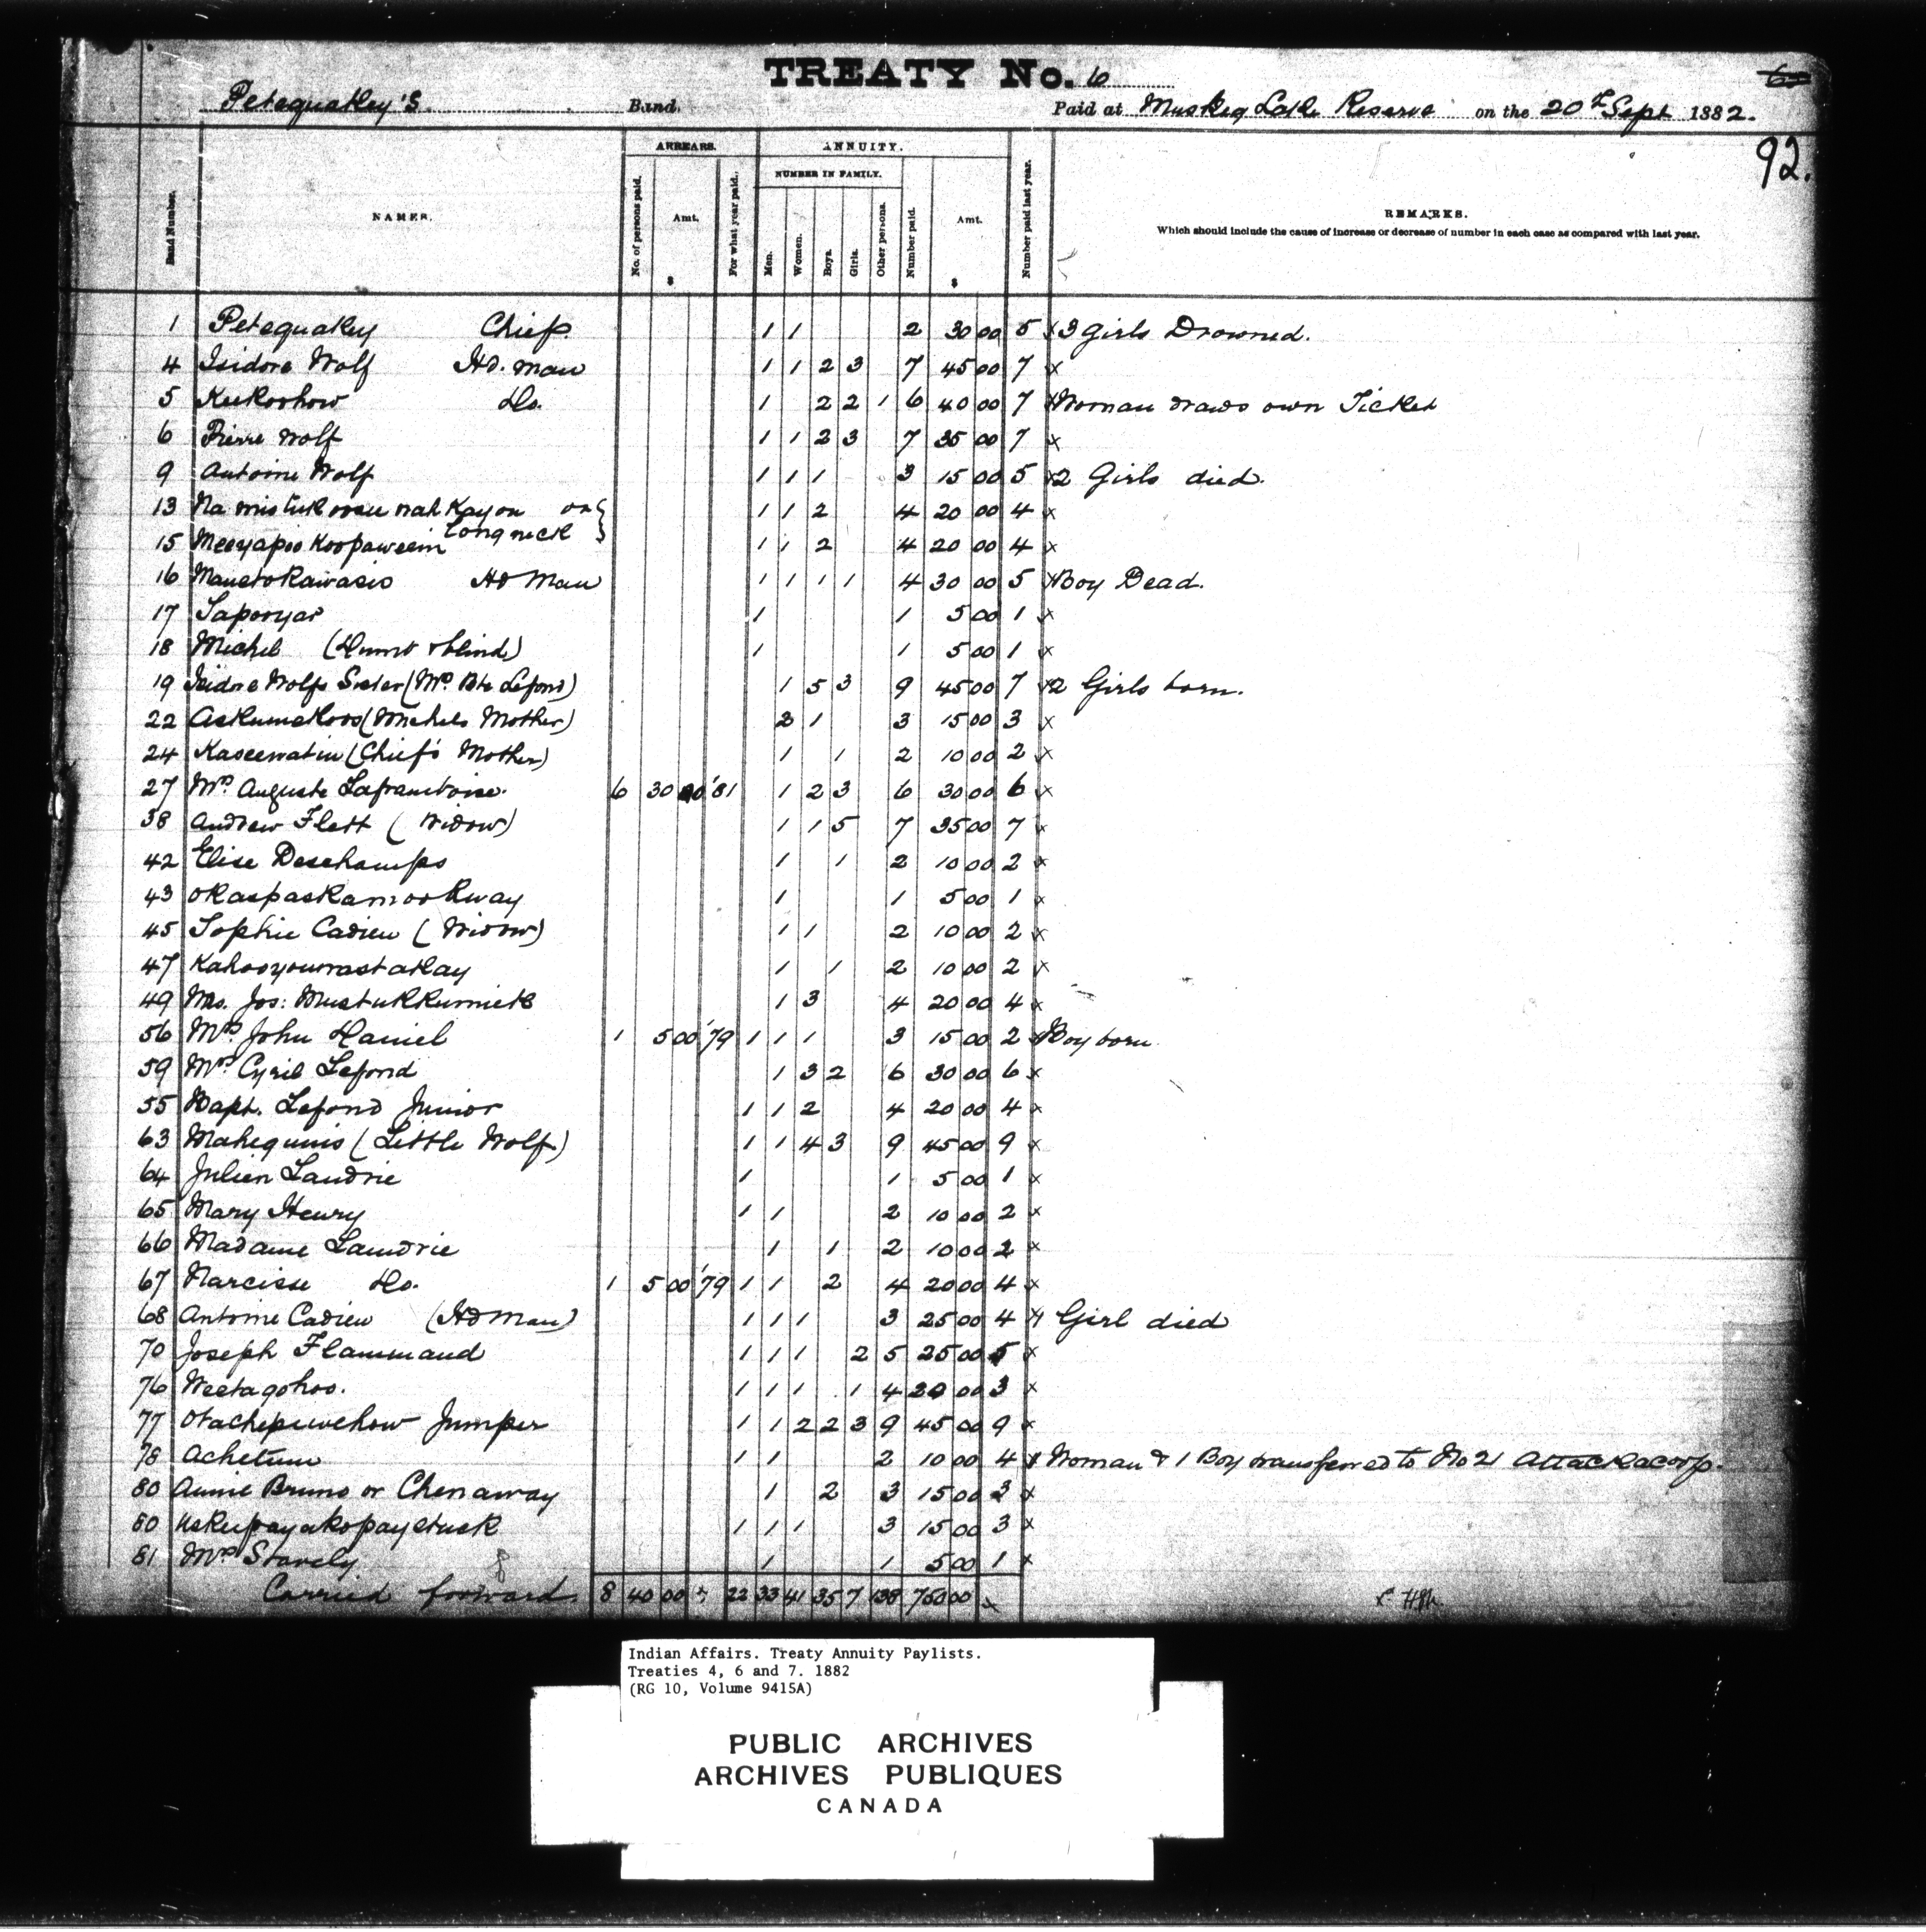 TREATY No. 6
Petequakey's Band. Paid at Muskeg Lake Reserve on the 20th Sept 1882.
92.
Band Number. NAMES. ARREARS. No. of persons paid. Amt. $ For what year paid. ANNUITY. NUMBER IN FAMILY. Men. Women. Boys. Girls. Other persons. Number paid. Amt. $ Number paid last year. REMARKS.
Which should include the cause of increase or decrease of number in each case as compared with last year.
1 Petequakey Chief. 1 1 2 30 00 5 x 3 Girls Drowned.
4 Isidore Wolf Hd. man 1 1 2 3 7 45 00 7 x
5 Keekoohow Do. 1 2 2 1 6 40 00 7 x Woman draws own Ticket
6 Pierre Wolf 1 1 2 3 7 35 00 7 x
9 Antoine Wolf 1 1 1 3 15 00 5 x 2 Girls died.
13 or 1 1 2 4 20 00 4 x
Long neck
15 1 1 2 4 20 00 4 x
16 Manetokawasis Hd Man 1 1 1 1 4 30 00 5 x Boy Dead.
17 Sapooyas 1 1 5 00 1 x
18 Michel (Dumb & blind) 1 1 5 00 1 x
19 Isidore Wolfs Sister (Mrs. Bte Lafond) 1 5 3 9 45 00 7 x 2 Girls born.
22 (Michels Mother) 2 1 3 15 00 3 x
24 Kaseewatin (Chief's Mother) 1 1 2 10 00 2 x
27 Mrs. Auguste Laframboise. 6 30 00 '81 1 2 3 6 30 00 6 x
38 Andrew Flett (Widow) 1 1 5 7 35 00 7 x
42 Elise Deschamps 1 1 2 10 00 2 x
43 Okaspaskamookway 1 1 5 00 1 x
45 Sophie Cadieu (Widow) 1 1 2 10 00 2 x
47 1 1 2 10 00 2 x
49 Mrs. Jos: 1 3 4 20 00 4 x
56 Mrs. John Daniel 1 5 00 '79 1 1 1 3 15 00 2 x Boy born
59 Mrs. Cyril Lafond 1 3 2 6 30 00 6 x
55 Bapt. Lafond Junior 1 1 2 4 20 00 4 x
63 Mahequnis (Little Wolf) 1 1 4 3 9 45 00 9 x
64 Julien Landrie 1 1 5 00 1 x
65 Mary Henry 1 1 2 10 00 2 x
66 Madame Landrie 1 1 2 10 00 2 x
67 Narcisse Do. 1 5 00 '79 1 1 2 4 20 00 4 x
68 Antoine Cadieu (Hd Man) 1 1 1 3 25 00 4 x Girl died
70 Joseph Flammand 1 1 1 2 5 25 00 5 x
76 Weetagohoo. 1 1 1 1 4 20 00 3 x
77 Otachepuwehow Jumper 1 1 2 2 3 9 45 00 9 x
78 Achetum 1 1 2 10 00 4 x Woman & 1 Boy transferred to No 21 Attackacoop.
80 Annie Bruno or Chenaway 1 2 3 15 00 3 x
80 1 1 1 3 15 00 3 x
81 Mrs Stovely 1 1 5 00 1 x
Carried forward 8 40 00 22 33 41 35 7 138 760 00 x
Indian Affairs. Treaty Annuity Paylists.
Treaties 4, 6 and 7. 1882
(RG 10, Volume 9415A)
PUBLIC ARCHIVES
ARCHIVES PUBLIQUES
CANADA